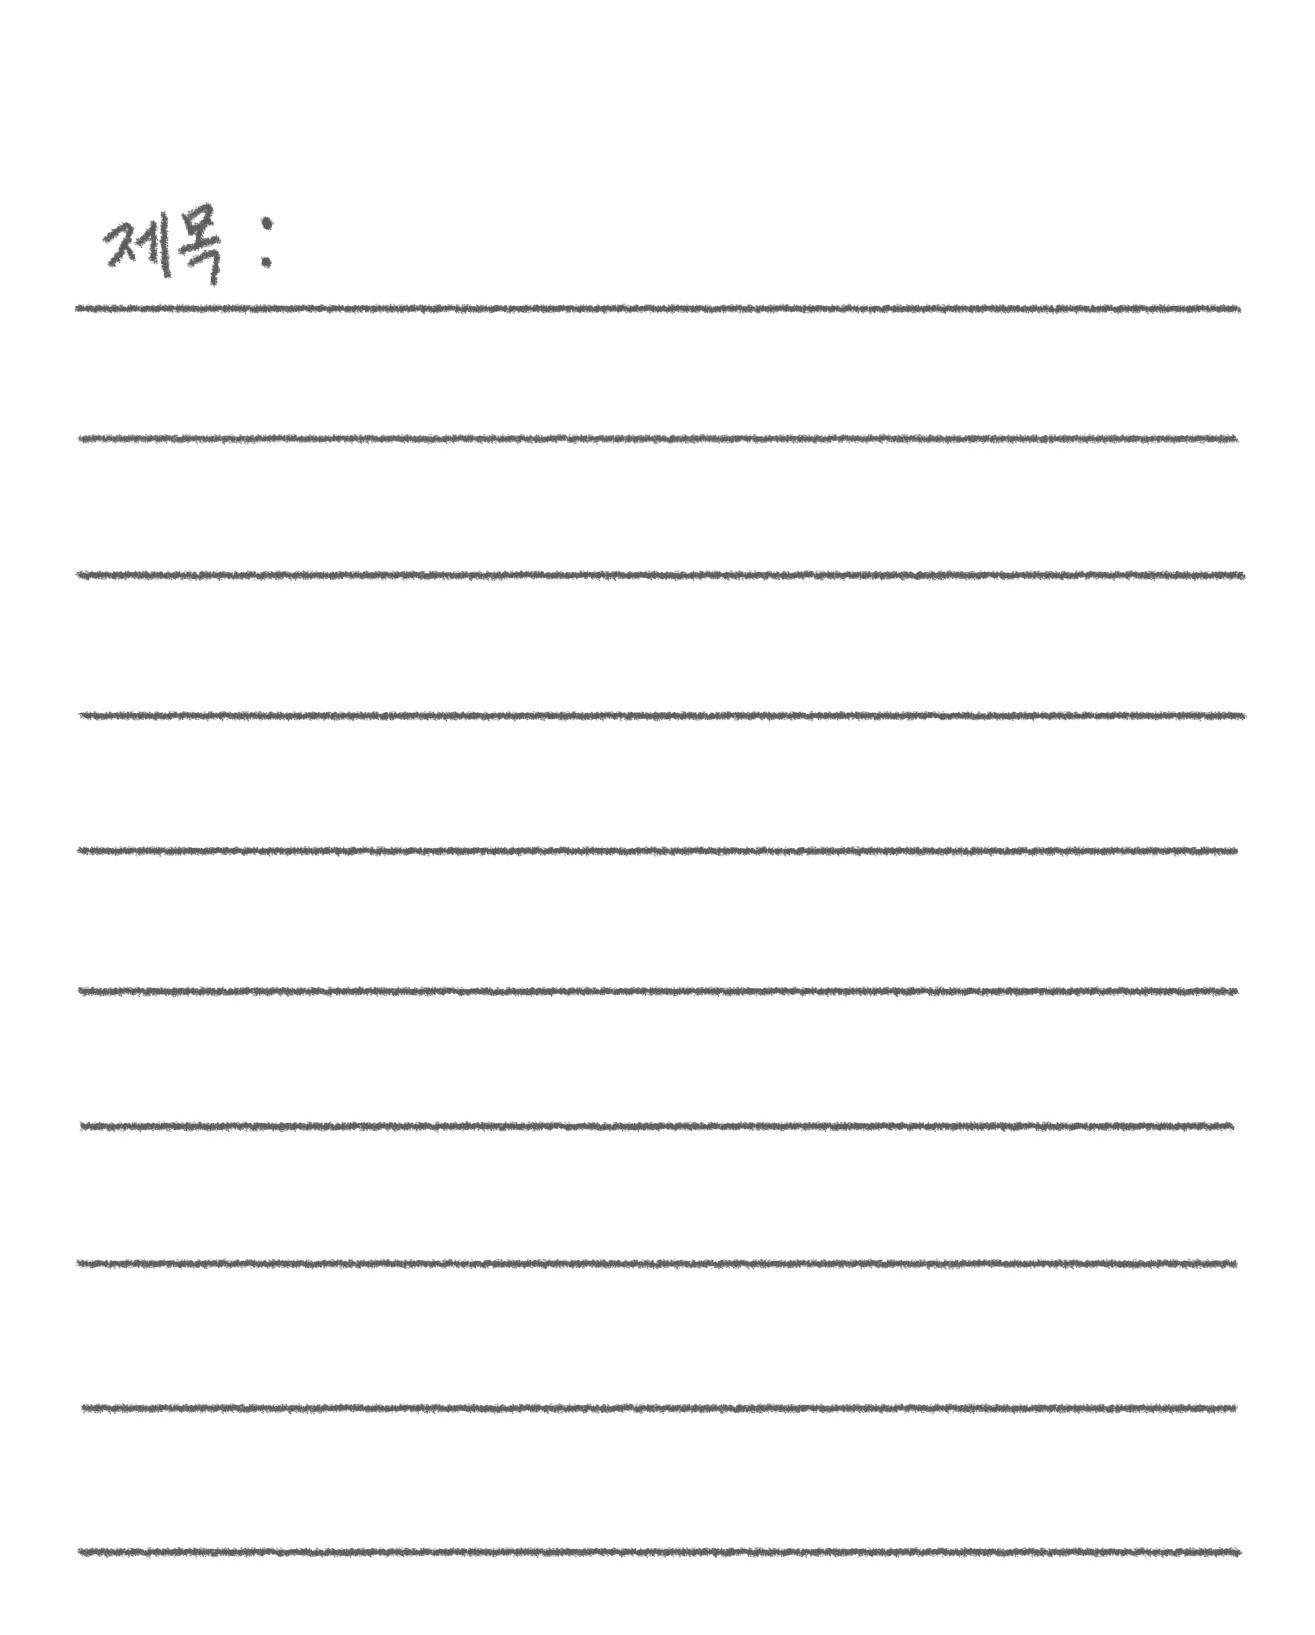 제목 :